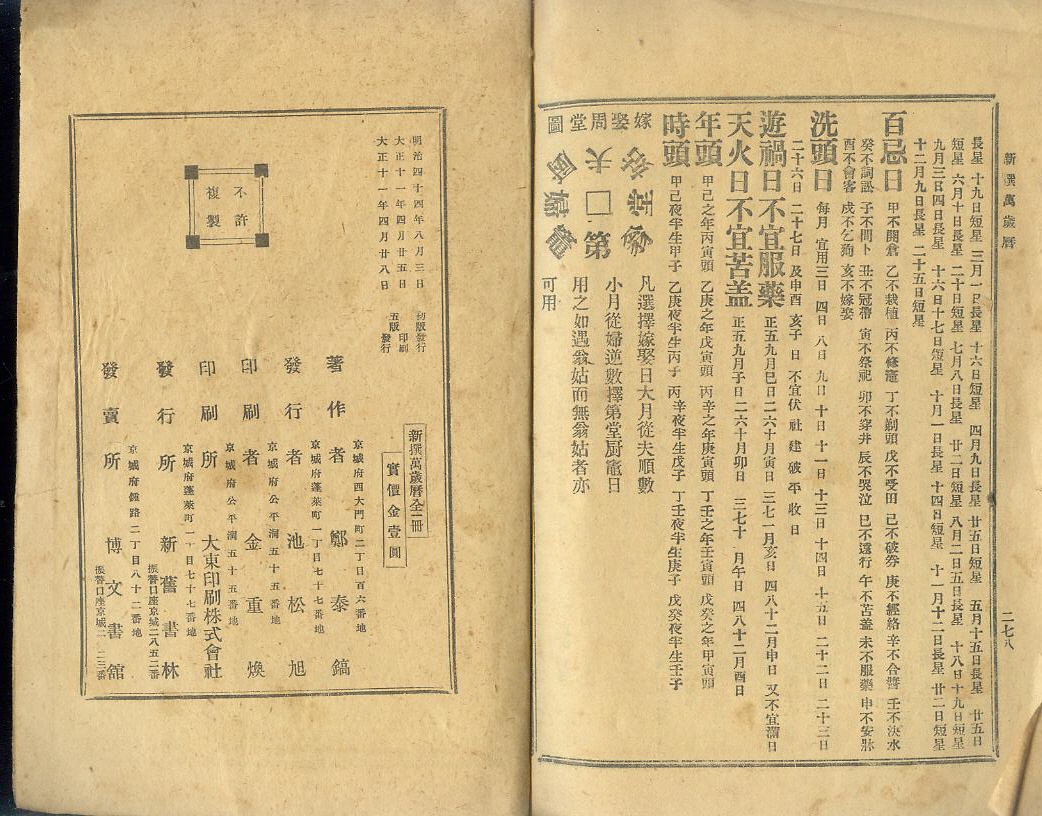 新撰萬歲曆
二七八
長星 十九日短星 三月一日長星 十六日短星 四月九日長星 廿五日短星 五月十五日長星 廿五日
短星 六月十日長星 二十日短星 七月八日長星 廿二日短星 八月二日五日長星 十八日十九日短星
九月三日四日長星 十六日十七日短星 十月一日長星 十四日短星 十一月十二日長星 廿二日短星
十二月九日長星 二十五日短星
百忌日 甲不開倉 乙不栽植 丙不修竈 丁不剃頭 戊不受田 己不破券 庚不經絡 辛不合醬 壬不決水
癸不詞訟 子不問卜 丑不冠帶 寅不祭祀 卯不穿井 辰不哭泣 巳不遠行 午不苫盖 未不服藥 申不安牀
酉不會客 戌不乞狗 亥不嫁娶
洗頭日 每月 宜用三日 四日 八日 九日 十日 十一日 十三日 十四日 十五日 二十二日 二十三日
二十六日 二十七日 及申酉 亥子日 不宜伏 社 建 破 平 收日
遊禍日不宜服藥 正五九月巳日 二六十月寅日 三七一月亥日 四八十二月申日 又不宜
天火日不宜苫盖 正五九月子日 二六十月卯日 三七十 月午日 四八十二月酉日
年頭 甲己之年丙寅頭 乙庚之年戊寅頭 丙辛之年庚寅頭 丁壬之年壬寅頭 戊癸之年甲寅頭
時頭 甲己夜半生甲子 乙庚夜半生丙子 丙辛夜半生戊子 丁壬夜半生庚子 戊癸夜半生壬子
嫁娶周堂圖
夫
第
竈
凡選擇嫁娶日大月從夫順數
小月從婦逆數擇第堂厨竈日
用之如遇翁姑而無翁姑者亦
可用
不許
複製
明治四十四年八月三日 初版發行
大正十一年四月廿五日 五版印刷
大正十一年四月廿八日 發行
新撰萬歲曆全一冊
實價金壹圓
京城府西大門町二丁目百六番地
著作者 鄭泰鎬
京城府蓬萊町一丁目七十七番地
發行者 池松旭
京城府公平洞五十五番地
印刷者 金重煥
京城府公平洞五十五番地
印刷所 大東印刷株式會社
京城府蓬萊町一丁目七十七番地
發行所 新舊書林
振替口座京城二八五二番
京城府鍾路二丁目八十二番地
發賣所 博文書舘
振替口座京城二 二三番